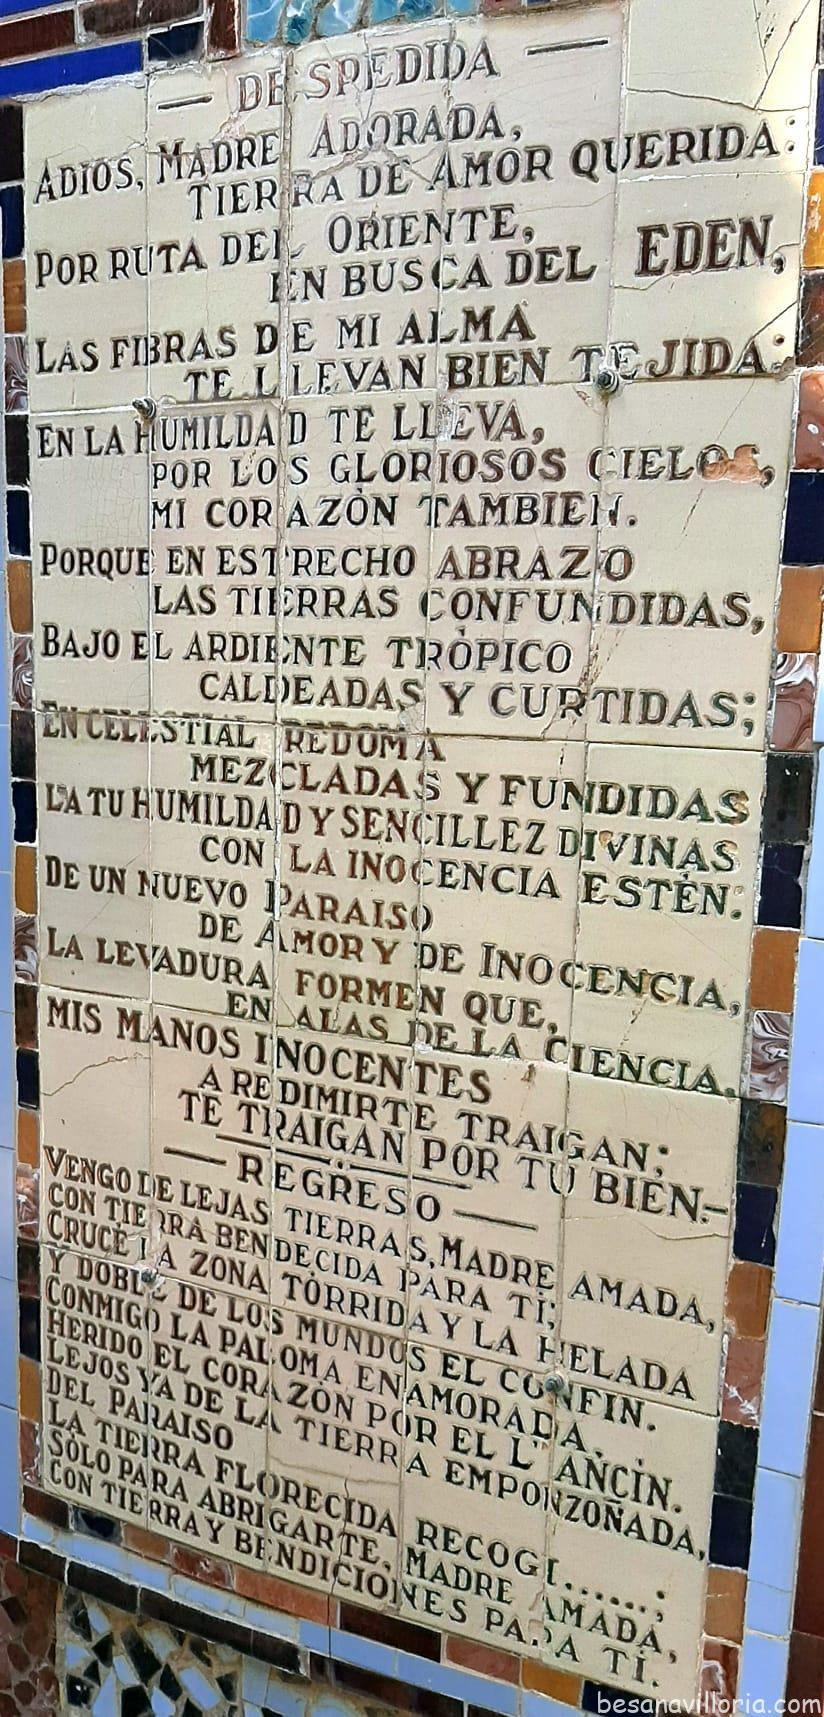 — DESPEDIDA —
ADIOS, MADRE ADORADA,
TIERRA DE AMOR QUERIDA:
POR RUTA DEL ORIENTE,
EN BUSCA DEL EDEN,
LAS FIBRAS DE MI ALMA
TE LLEVAN BIEN TEJIDA:
EN LA HUMILDAD TE LLEVA,
POR LOS GLORIOSOS CIELOS,
MI CORAZÓN TAMBIEN.
PORQUE EN ESTRECHO ABRAZO
LAS TIERRAS CONFUNDIDAS,
BAJO EL ARDIENTE TRÓPICO
CALDEADAS Y CURTIDAS;
EN CELESTIAL REDOMA
MEZCLADAS Y FUNDIDAS
LA TU HUMILDAD Y SENCILLEZ DIVINAS
CON LA INOCENCIA ESTÉN:
DE UN NUEVO PARAISO
DE AMOR Y DE INOCENCIA,
LA LEVADURA FORMEN QUE,
EN ALAS DE LA CIENCIA,
MIS MANOS INOCENTES
A REDIMIRTE TRAIGAN;
TE TRAIGAN POR TU BIEN.–
— REGRESO —
VENGO DE LEJAS TIERRAS, MADRE AMADA,
CON TIERRA BENDECIDA PARA TÍ;
CRUCÉ LA ZONA TÓRRIDA Y LA HELADA
Y DOBLÉ DE LOS MUNDOS EL CONFIN.
CONMIGO LA PALOMA ENAMORADA,
HERIDO EL CORAZÓN POR EL L'ANCÍN.
LEJOS YA DE LA TIERRA EMPONZOÑADA,
DEL PARAISO
LA TIERRA FLORECIDA RECOGÍ......;
SÓLO PARA ABRIGARTE, MADRE AMADA,
CON TIERRA Y BENDICIONES PARA TÍ.
besanavilloria.com